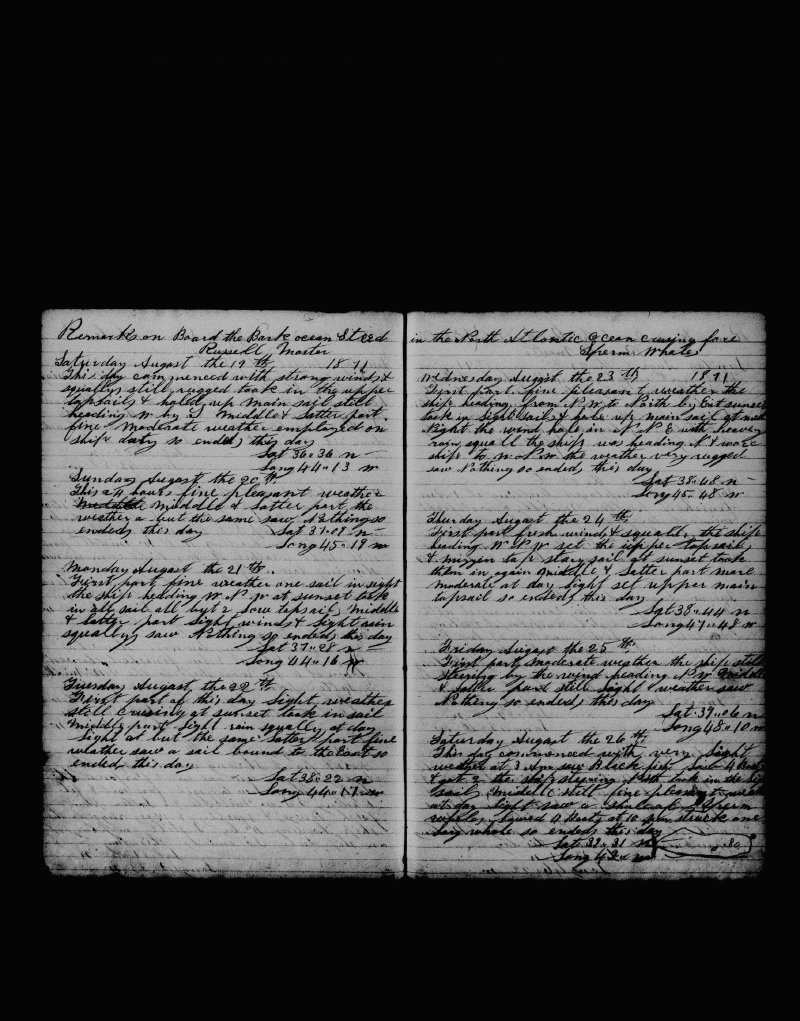 Remarks on Board the Bark ocean Steed
Russell Master
Saturday August the 19 th 1871
This day commenced with strong winds &
squally still rugged took in the upper
topsails & hold up main sail still
heading W by S Middle & Latter part
fine moderate weather employed on
ship duty so ended this day
Lat 36 " 36 n
Long 44 " 13 w
Sunday August the 20 th
This 24 hours fine pleasant weather
middle the
weather a but the same saw Nothing so
ended this day Lat 37 " 09 n
Long 45 " 19 w
Monday August the 21 th
First part fine weather one sail in sight
the ship heading W N W at sunset took
in all sail all but 2 Low topsails Middle
& Latter part Light winds & Light rain
squally saw Nothing so ended this day
Lat 37 " 28 n
Long 44 " 16 w
Tuesday August the 22 th
First part of this day Light weather
still Cruising at sunset took in sail
Middle part Light rain squally at day
Light a but the same Latter part fine
weather saw a sail bound to the East so
ended this day
Lat 38 " 22 n
Long 44 " 17 w
in the North Atlantic Ocean cruising fore
Sperm Whales
Wednesday August the 23 th 1871
First part fine pleasant weather the
ship heading from N W to North by E at sunset
took in Light sails & hole up main sail at mid
Night the wind in N N E with heavey
rain squall the ship was heading N & wore
ship to W N W the weather very rugged
saw Nothing so ended this day
Lat 38 " 48 n
Long 45 " 48 w
Thursday August the 24 th
First part fresh winds & squally the ship
heading W N W set the upper topsails
& mizzen top stay sail at sunset took
them in again Middle & Latter part more
moderate at day Light set upper main
topsail so ended this day
Lat 38 " 44 n
Long 47 " 48 w
Friday August the 25 th
First part moderate weather the ship still
steering by the wind heading N W Middle
& Latter part still Light weather saw
Nothing so ended this day
Lat 39 " 06 n
Long 48 " 10 w
Saturday August the 26 th
This day commenced with very Light
weather at 3 Am saw Black fish 4 Boats
& got 2 the ship North took in the
sail Middle still fine pleasant
at day Light saw a of Sperm
whales Lowed 4 Boats at 10 struck one
Large whale so ended this day
Lat 39 " 31 n 80
Long 48 w